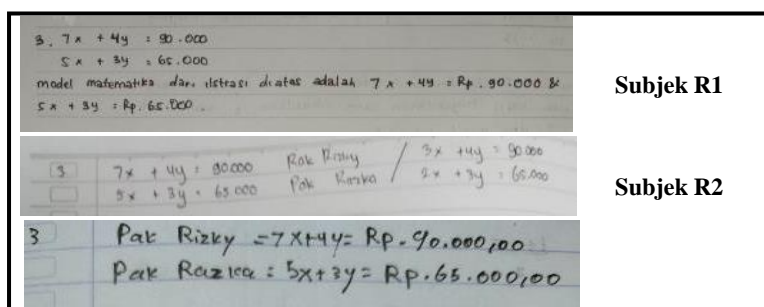 3. 7x + 4y = 90.000
5x + 3y = 65.000
model matematika dari ilstrasi diatas adalah 7x + 4y = Rp. 90.000 &
5x + 3y = Rp. 65.000.
Subjek R1
3 7x + 4y = 90000 Pak Rizky / 3x + 4y = 90.000
5x + 3y = 65.000 Pak Razka / 2x + 3y = 65.000
Subjek R2
3 Pak Rizky = 7x+4y= Rp.90.000,00
Pak Razka = 5x+3y= Rp.65.000,00